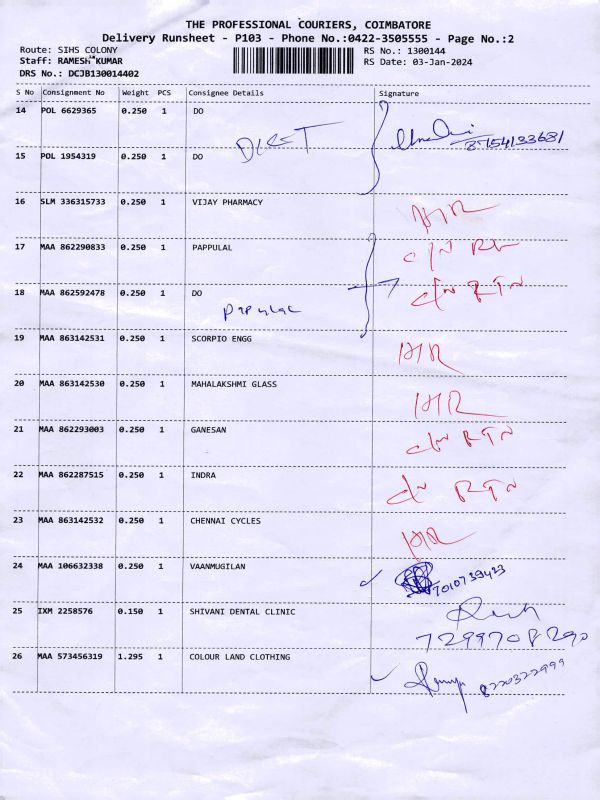 THE PROFESSIONAL COURIERS, COIMBATORE
Delivery Runsheet - P103 - Phone No.:0422-3505555 - Page No.:2
Route: SIHS COLONY
Staff: RAMESH KUMAR
DRS No.: DCJB130014402
RS No.: 1300144
RS Date: 03-Jan-2024
S No Consignment No Weight PCS Consignee Details Signature
14 POL 6629365 0.250 1 DO
87154133681
15 POL 1954319 0.250 1 DO
16 SLM 336315733 0.250 1 VIJAY PHARMACY
17 MAA 862290833 0.250 1 PAPPULAL
18 MAA 862592478 0.250 1 DO C/N RTN
Papulal
19 MAA 863142531 0.250 1 SCORPIO ENGG
20 MAA 863142530 0.250 1 MAHALAKSHMI GLASS
21 MAA 862293003 0.250 1 GANESAN C/N RTN
22 MAA 862287515 0.250 1 INDRA C/N RTN
23 MAA 863142532 0.250 1 CHENNAI CYCLES
24 MAA 106632338 0.250 1 VAANMUGILAN 7010739423
25 IXM 2258576 0.150 1 SHIVANI DENTAL CLINIC
7299708290
26 MAA 573456319 1.295 1 COLOUR LAND CLOTHING 8220322999